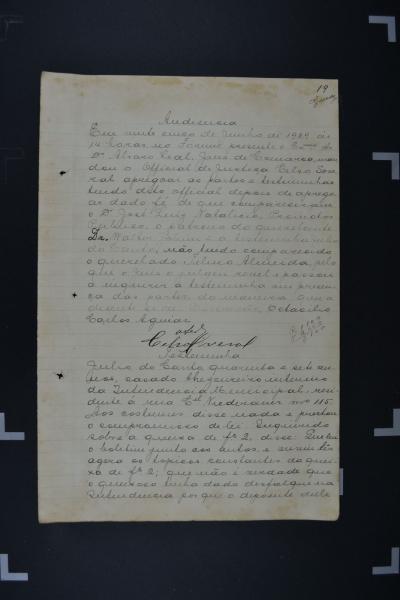 19
Audiencia
Em vinte cinco de Junho de 1929 ás
14 horas, no Forum presente o Exmo Sr
Dr Alvaro Leal, Juiz de Comarca, man
dou o Official de Justiça Celso
apregoar as partes e testemunhas
tendo esse official depois de aprego
ar dado fé de que compareceram
o Dr José Luiz Natalicio, Promotor
Publico, o patrono do querelante
Dr. Walter e a testemunha Julio
do Canto, não tendo comparecido
o querelado Almeida, pelo
que o Juiz o julgou revel e passou
a inquirir a testemunha em presen
ça das partes da maneira que a
deante se vê. Octacilio
Carlos Aguiar
Testemunha
Julio do Canto quarenta e seis an
nos, casado, thesoureiro interino
da Intendencia Municipal, resi
dente á rua Cel nº 115.
Aos costumes disse nada e prestou
o compromisso de lei. Inquirido
sobre a queixa de fs 2, disse:
o boletim junto aos autos, e ouviu ler
agora os topicos constantes da quei
xa de fs 2; que não é verdade que
o queixoso tenha dado desfalque na
Intendencia, porque o depoente